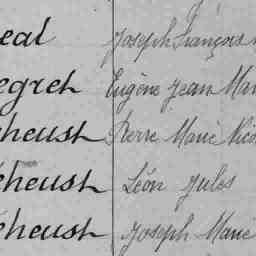 eal Joseph François
egret Eugène Jean Mar
eheust Pierre Marie Nico
eheust Léon Jules
eheust Joseph Marie